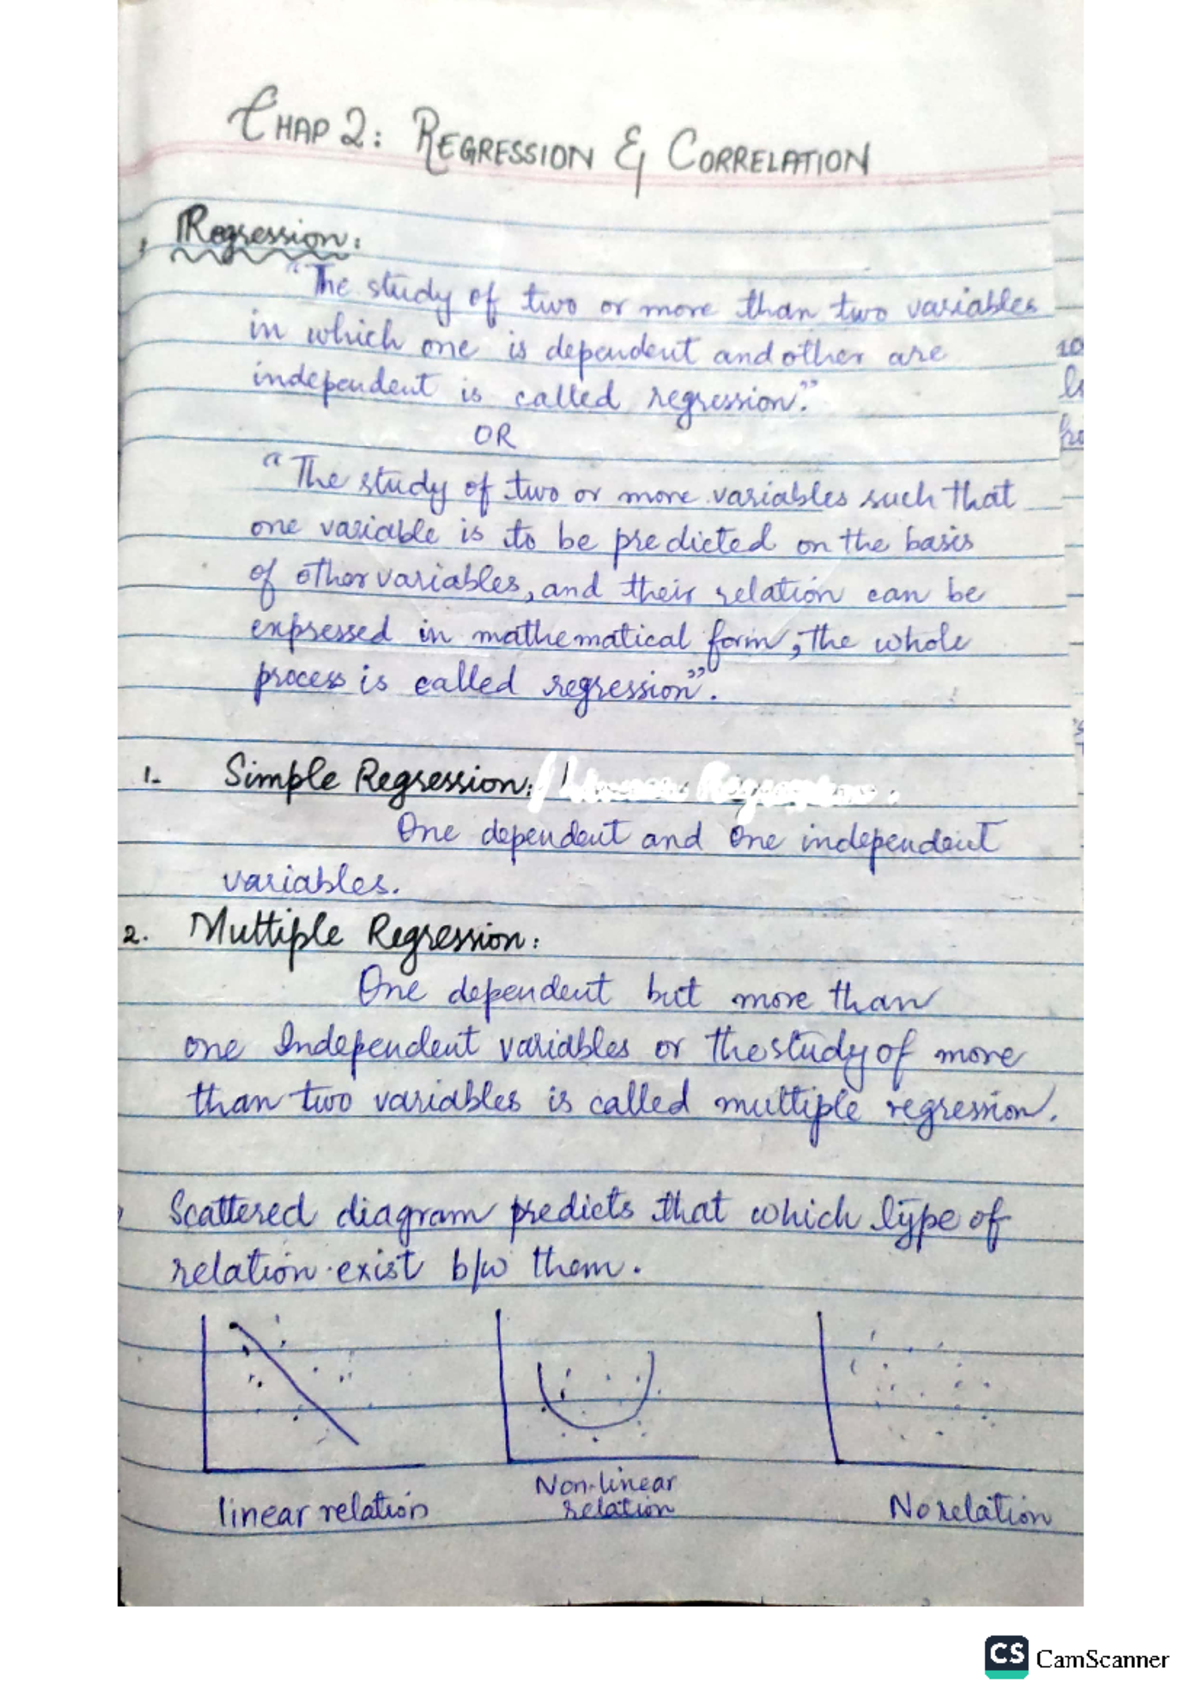 CHAP 2: REGRESSION & CORRELATION
Regression:
"The study of two or more than two variables
in which one is dependent and other are
independent is called regression."
OR
"The study of two or more variables such that
one variable is to be predicted on the basis
of other variables, and their relation can be
expressed in mathematical form, the whole
process is called regression".
1- Simple Regression:
One dependent and One independent
variables.
2. Multiple Regression:
One dependent but more than
one Independent variables or the study of more
than two variables is called multiple regression.
Scattered diagram predicts that which type of
relation exist b/w them.
linear relation
Non-linear
relation
No relation
CS CamScanner